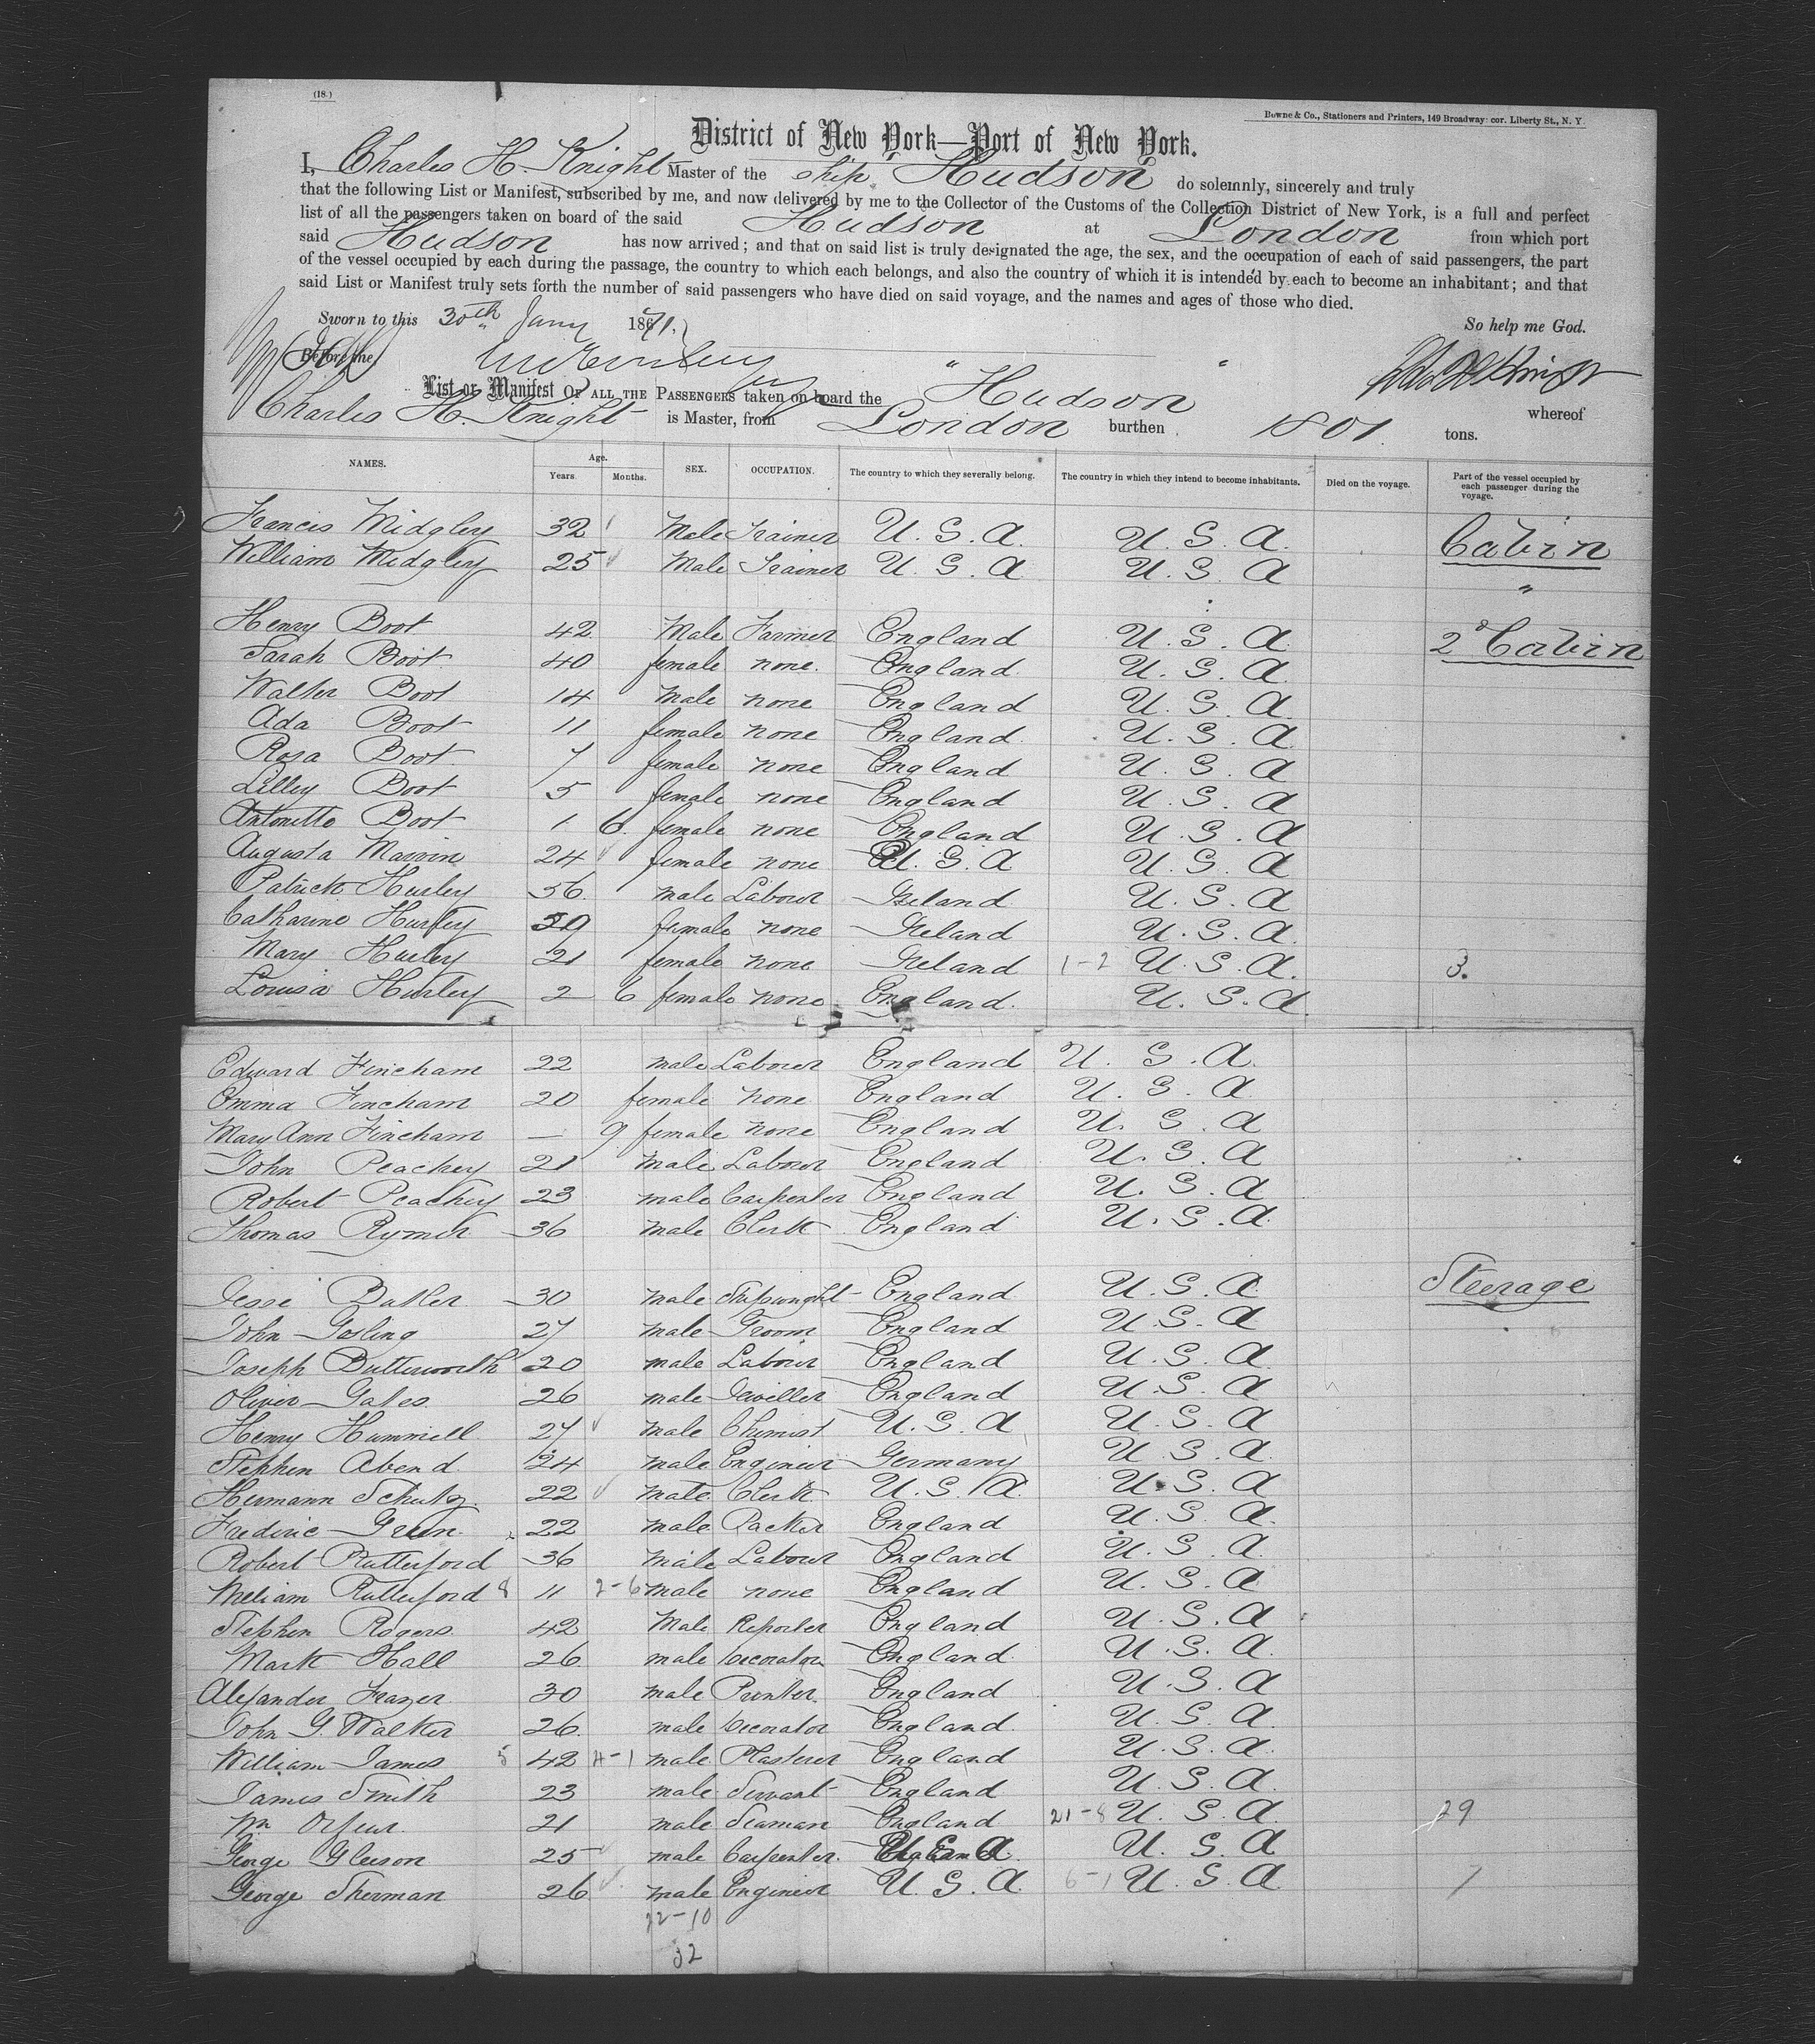 (18.)
Bowne & Co., Stationers and Printers, 149 Broadway: cor. Liberty St., N. Y.
District of New York—Port of New York.
I, Charles H. Knight Master of the ship Hudson do solemnly, sincerely and truly
that the following List or Manifest, subscribed by me, and now delivered by me to the Collector of the Customs of the Collection District of New York, is a full and perfect
list of all the passengers taken on board of the said Hudson at London from which port
said Hudson has now arrived; and that on said list is truly designated the age, the sex, and the occupation of each of said passengers, the part
of the vessel occupied by each during the passage, the country to which each belongs, and also the country of which it is intended by each to become an inhabitant; and that
said List or Manifest truly sets forth the number of said passengers who have died on said voyage, and the names and ages of those who died.
Sworn to this 30th Jany 1871. So help me God.
Before me
List or Manifest OF ALL THE PASSENGERS taken on board the " Hudson " whereof
Charles H. Knight is Master, from London burthen 1801. tons.
NAMES. Age. Years. Months. SEX. OCCUPATION. The country to which they severally belong. The country in which they intend to become inhabitants. Died on the voyage. Part of the vessel occupied by each passenger during the voyage.
Francis Midgley 32 Male Trainer U. S. A. U. S. A. Cabin
William Midgley 25 Male Trainer U. S. A U. S. A "
Henry Boot 42 Male Farmer England U. S. A 2d Cabin
Sarah Boot 40 female none. England U. S. A
Walter Boot 14 male none England U. S. A
Ada Boot 11 female none England U. S. A
Rosa Boot 7 female none England U. S. A
Lilley Boot 5 female none England U. S. A
Antonette Boot 1 6 female none England U. S. A
Augusta Marvin 24 female none U. S. A U. S. A
Patrick Hurley 56 male Labour Ireland U. S. A
Catharine Hurley 50 female none Ireland U. S. A.
Mary Hurley 21 female none Ireland 1-2 U. S. A. 3.
Louisa Hurley 2 6 female none England. U. S. A.
Edward Fincham 22 male Labourer England U. S. A.
Emma Fincham 20 female none England U. S. A
Mary Ann Fincham — 9 female none England U. S. A
John Peachey 21 male Labour England U. S. A
Robert Peachey 23 male Carpenter England U. S. A
Thomas Rymer 36 male Clerk England U. S. A.
Jesse Butler 30 male Shipwright England U. S. A. Steerage
John Gosling 27 male Groom England U. S. A
Joseph Butterworth 20 male Labour England U. S. A.
Oliver Gates 26 male Jewiller England U. S. A
Henry Hummell 27 male Chemist U. S. A U. S. A
Stephen Abend 24 male Engineer Germany U. S. A
Hermann Schulz 22 male Clerk U. S. A. U. S. A
Frederic Green 22 male Packer England U. S. A.
Robert Rutterford 36 male Labour England U. S. A.
William Rutterford 8 11 2-6 male none England U. S. A
Stephen Rogers 42 Male Reporter England U. S. A
Mark Hall 26 male Decorator England U. S. A.
Alexander Frazer 30 male Printer England U. S. A
John G. Walker 26 male Decorator England U. S. A.
William James 5 42 4-1 male Plasterer England U. S. A.
James Smith 23 male Servant England U. S. A.
Wm Orfeur 21 male Seaman England 21-8 U. S. A. 29
George Gleeson 25 male Carpenter U. S. A U. S. A
George Sherman 26 male Engineer U. S. A. 6-1 U. S. A 1
22-10
32